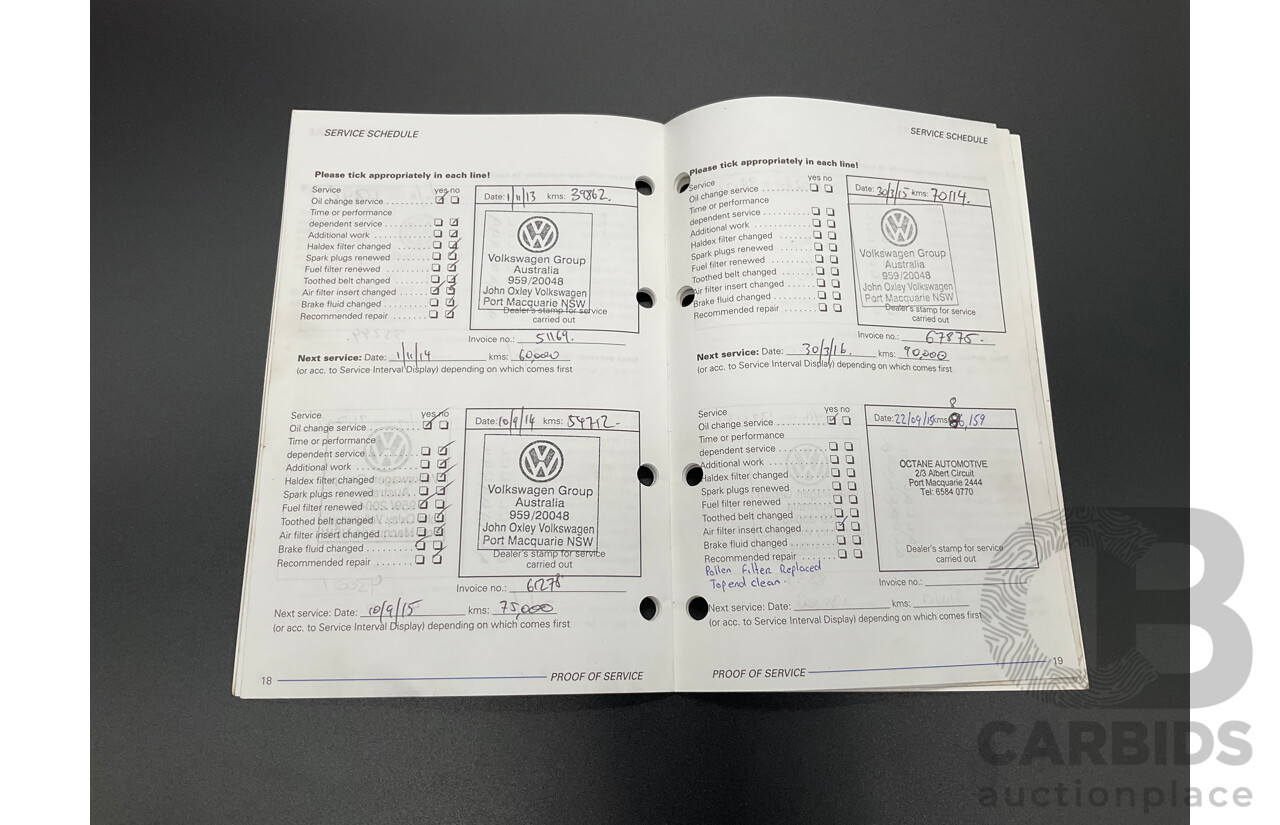 SERVICE SCHEDULE
Please tick appropriately in each line!
Service yes no
Oil change service
Time or performance
dependent service
Additional work
Haldex filter changed
Spark plugs renewed
Fuel filter renewed
Toothed belt changed
Air filter insert changed
Brake fluid changed
Recommended repair
Date: 1/11/13 kms: 39862.
Volkswagen Group
Australia
959/20048
John Oxley Volkswagen
Port Macquarie NSW
Dealer's stamp for service
carried out
Invoice no.: 51169.
Next service: Date: 1/11/14 kms: 60,000
(or acc. to Service Interval Display) depending on which comes first
Service yes no
Oil change service
Time or performance
dependent service
Additional work
Haldex filter changed
Spark plugs renewed
Fuel filter renewed
Toothed belt changed
Air filter insert changed
Brake fluid changed
Recommended repair
Date: 10/9/14 kms: 54712-
Volkswagen Group
Australia
959/20048
John Oxley Volkswagen
Port Macquarie NSW
Dealer's stamp for service
carried out
Invoice no.: 61275
Next service: Date: 10/9/15 kms: 75,000
(or acc. to Service Interval Display) depending on which comes first
18 PROOF OF SERVICE
SERVICE SCHEDULE
Please tick appropriately in each line!
Service yes no
Oil change service
Time or performance
dependent service
Additional work
Haldex filter changed
Spark plugs renewed
Fuel filter renewed
Toothed belt changed
Air filter insert changed
Brake fluid changed
Recommended repair
Date: 30/3/15 kms: 70114.
Volkswagen Group
Australia
959/20048
John Oxley Volkswagen
Port Macquarie NSW
Dealer's stamp for service
carried out
Invoice no.: 67875-
Next service: Date: 30/3/16. kms: 90,000
(or acc. to Service Interval Display) depending on which comes first
Service yes no
Oil change service
Time or performance
dependent service
Additional work
Haldex filter changed
Spark plugs renewed
Fuel filter renewed
Toothed belt changed
Air filter insert changed
Brake fluid changed
Recommended repair
Pollen Filter Replaced
Top end clean-
8
Date: 22/04/15 kms: 86,159
OCTANE AUTOMOTIVE
2/3 Albert Circuit
Port Macquarie 2444
Tel: 6584 0770
Dealer's stamp for service
carried out
Invoice no.:
Next service: Date: kms:
(or acc. to Service Interval Display) depending on which comes first
PROOF OF SERVICE 19
CB
CARBIDS
auctionplace